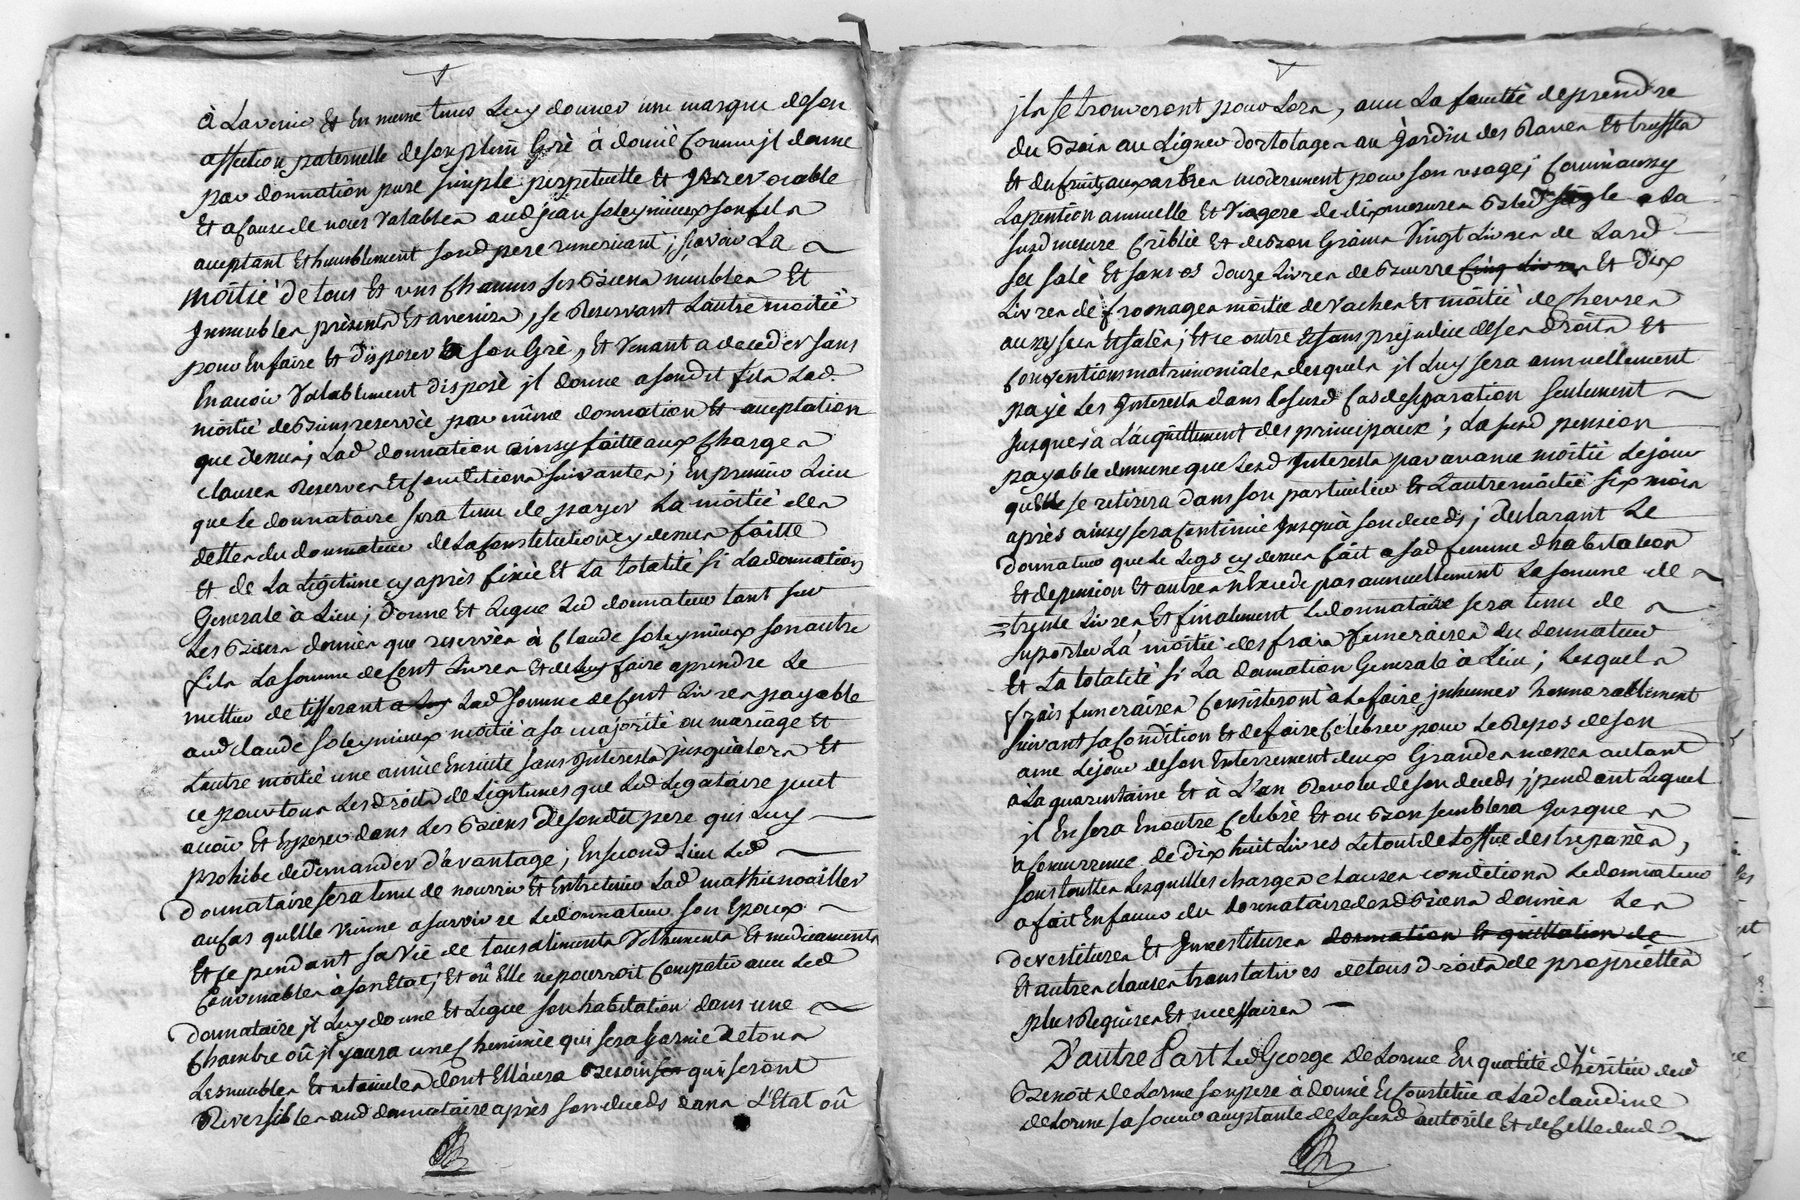 à Lavenir Et En meme tems Luy donner une marque deson
affection paternelle deson plein Gré à donné Comme jl donne
par donnation pure simple perpetuelle et Jrrevocable
Et acause de noces Valables aud jean soleymieux son fils
aceptant Et humblement sond pere remerciant ; sçavoir La
moitié de tous Et uns Chacuns ses Biens meubles Et
Jmmeubles présents Et avenirs, se Reservant Lautre moitié
pour En faire Et Disposer a son Gré, Et Venant a deceder sans
En avoir Vallablement disposé jl donne a sondit fils Lad.
moitié de Biens reservée par même donnation Et aceptation
que dessus ; Lad donnation ainsy faitte aux Charges
clauses Reserves Et Conditions suivantes ; En premier Lieu
que Le donnataire sera tenu de payer La moitié des
dettes du donnateur de La Constitution cy dessus faitte
Et de La Légitime cy après fixée Et La totalité si La donnation
Generale à Lieu ; donne Et Legue Led donnateur tant sur
Les Biens donnés que reservés à Claude soleymieux son autre
fils La somme de Cent Livres Et de Luy faire aprendre Le
mettier de tisserant a Luy Lad somme de Cent Livres payable
aud claude soleymieux moitié à sa majorité ou mariage Et
Lautre moitié une année Ensuite sans Jnterests jusquàlors Et
ce pour tous Les Droits de Légitimes que Led Legataire peut
avoir Et Esperer dans Les Biens de sondit pere qui Luy
prohibe de Demander d'avantage ; En second Lieu Led
Donnataire sera tenu de nourrir Et Entretenir Lad mathie noailler
au Cas qu'Elle vienne a survivre Le donnateur son Epoux
Et Ce pendant sa Vie de tous aliments Vêtements Et medicaments
Convenables à son Etat ; Et où Elle ne pourroit Compatir avec Led
Donnataire jl Luy donne Et Legue son habitation dans une
Chambre où jl y aura une Cheminée qui sera Garnie de tous
Les meubles Et ustenciles dont Ell aura Besoin qui seront
Reversibles aud donnataire après son deceds dans L'Etat où
jls se trouveront pour Lors, avec La faculté de prendre
du Bois au Ligner dortolages au jardin des Raves Et truffes
Et du fruit aux arbres moderement pour son usage ; Comme aussy
La pention annuelle Et Viagere de dix mesures Bled seigle a La
susd mesure Criblé Et de Bon Grain Vingt Livres de Lard
sec salé Et sans os douze Livres de Beurre Cinq Livres Et Dix
Livres de fromages moitié de Vaches Et moitié de Chevres
aussy secs Et salés ; Et ce outre Et sans prejudice de ses Droits Et
Conventions matrimoniales desquels jl Luy sera annuellement
payé Les Jnterests dans Le susd Cas de separation seulement
jusques à L'acquittement des principaux ; La susd pension
payable de meme que Lesd Jnterests par avance moitié Le jour
quElle se retirera dans son particulier Et Lautre moitié six mois
après ainsy sera Continué jusquà son deceds ; declarant Le
donnateur que Le Legs cy dessus fait a sad femme d'habitation
Et de pension Et autres n'Excede pas annuellement La somme de
trente Livres Et finalement Le donnataire sera tenu de
suporter La moitié des frais funeraires du donnateur
Et La totalité si La donnation Generale à Lieu ; Lesquels
frais funeraires Consisteront a Le faire jnhumer honnorablement
suivant sa Condition Et de faire Celebrer pour Le Repos de son
ame Le jour de son Enterrement deux Grandes messes autant
à La quarantaine Et à L'an Revolu de son deceds, pendant Lequel
jl En sera En outre Celebré Et ou Bon semblera Jusques
a Concurrence de Dix huit Livres Le tout de Loffice des trepassés,
sous touttes Lesquelles charges clauses conditions Le donnateur
a fait En faveur du donnataire desd Biens donnés Les
devestitures Et Jnvestitures donnation Et quittation de
Et autres clauses translatives de tous droits de propriettés
plus Requises Et necessaires
D'autre Part Led George De Lorme En qualité d'héritier dud
Benoit de Lorme son pere à donné Et Constitué a Lad claudine
de Lorme sa soeur aceptante de La susd autorité Et de Celle dud